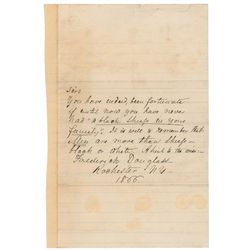 Sir:
You have indeed, been fortunate
if until now you have never
had "a black sheep in your
family". It is well to remember that
Men are more than sheep -
black or white. A hint to the wise -
Frederick Douglass
Rochester N.Y.
1866.